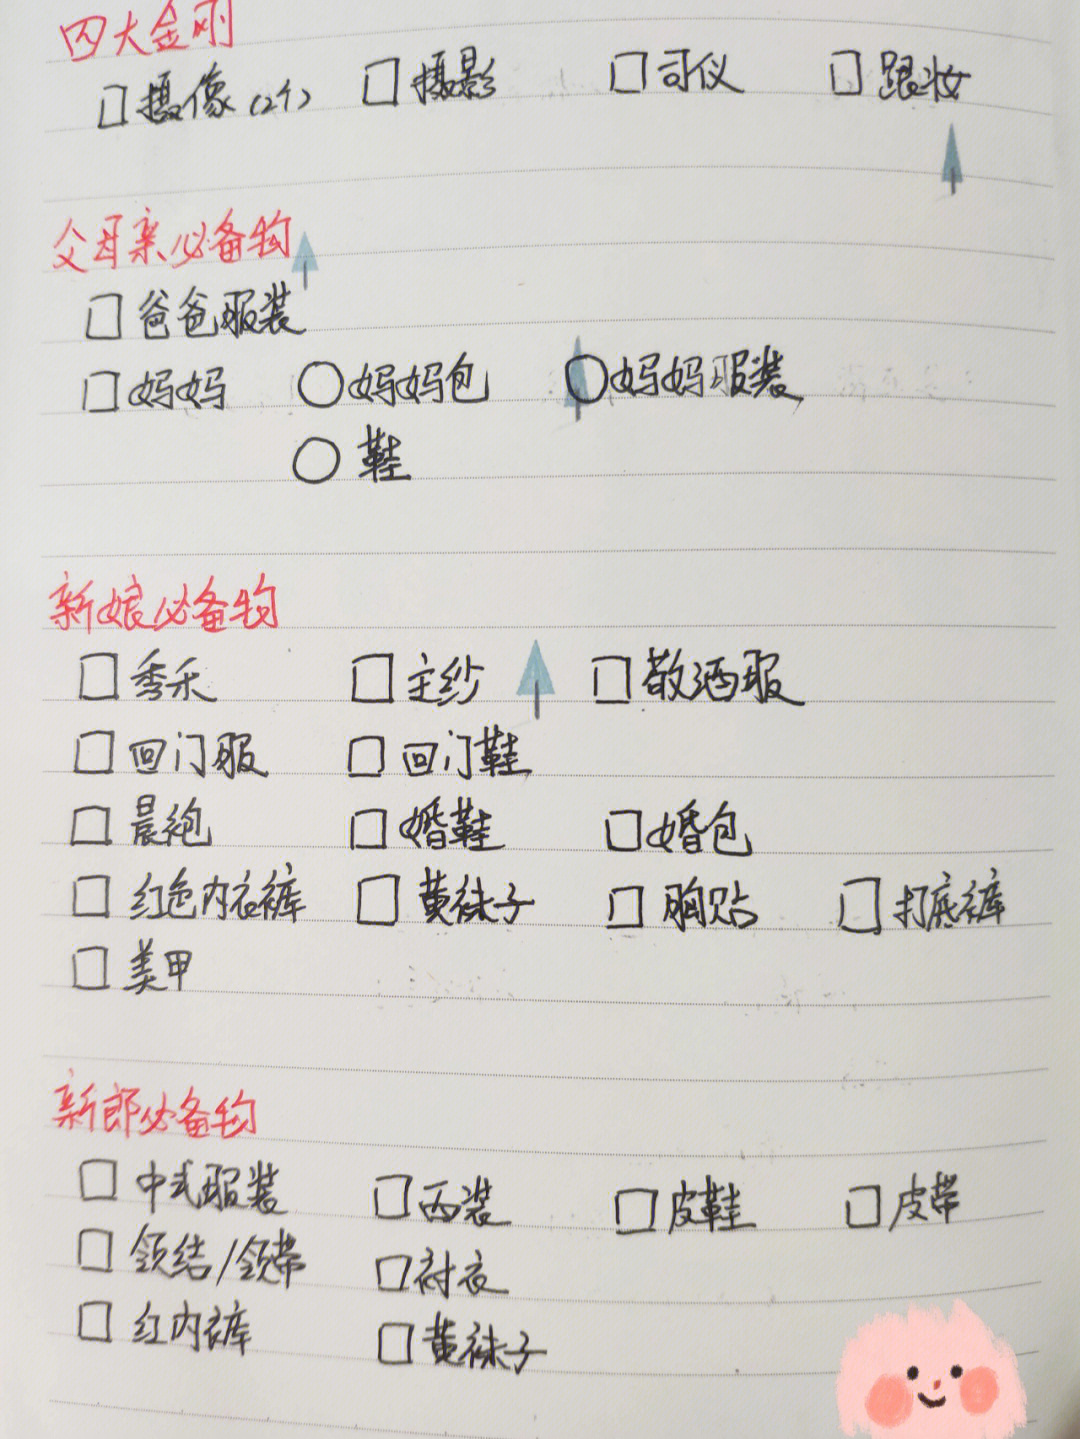 四大金刚
□摄像(2个) □摄影 □司仪 □跟妆
父母亲必备物
□爸爸服装
□妈妈 ○妈妈包 ○妈妈服装
○鞋
新娘必备物
□秀禾 □主纱 □敬酒服
□回门服 □回门鞋
□晨袍 □婚鞋 □婚包
□红色内衣裤 □黄袜子 □胸贴 □打底裤
□美甲
新郎必备物
□中式服装 □西装 □皮鞋 □皮带
□领结/领带 □衬衣
□红内裤 □黄袜子